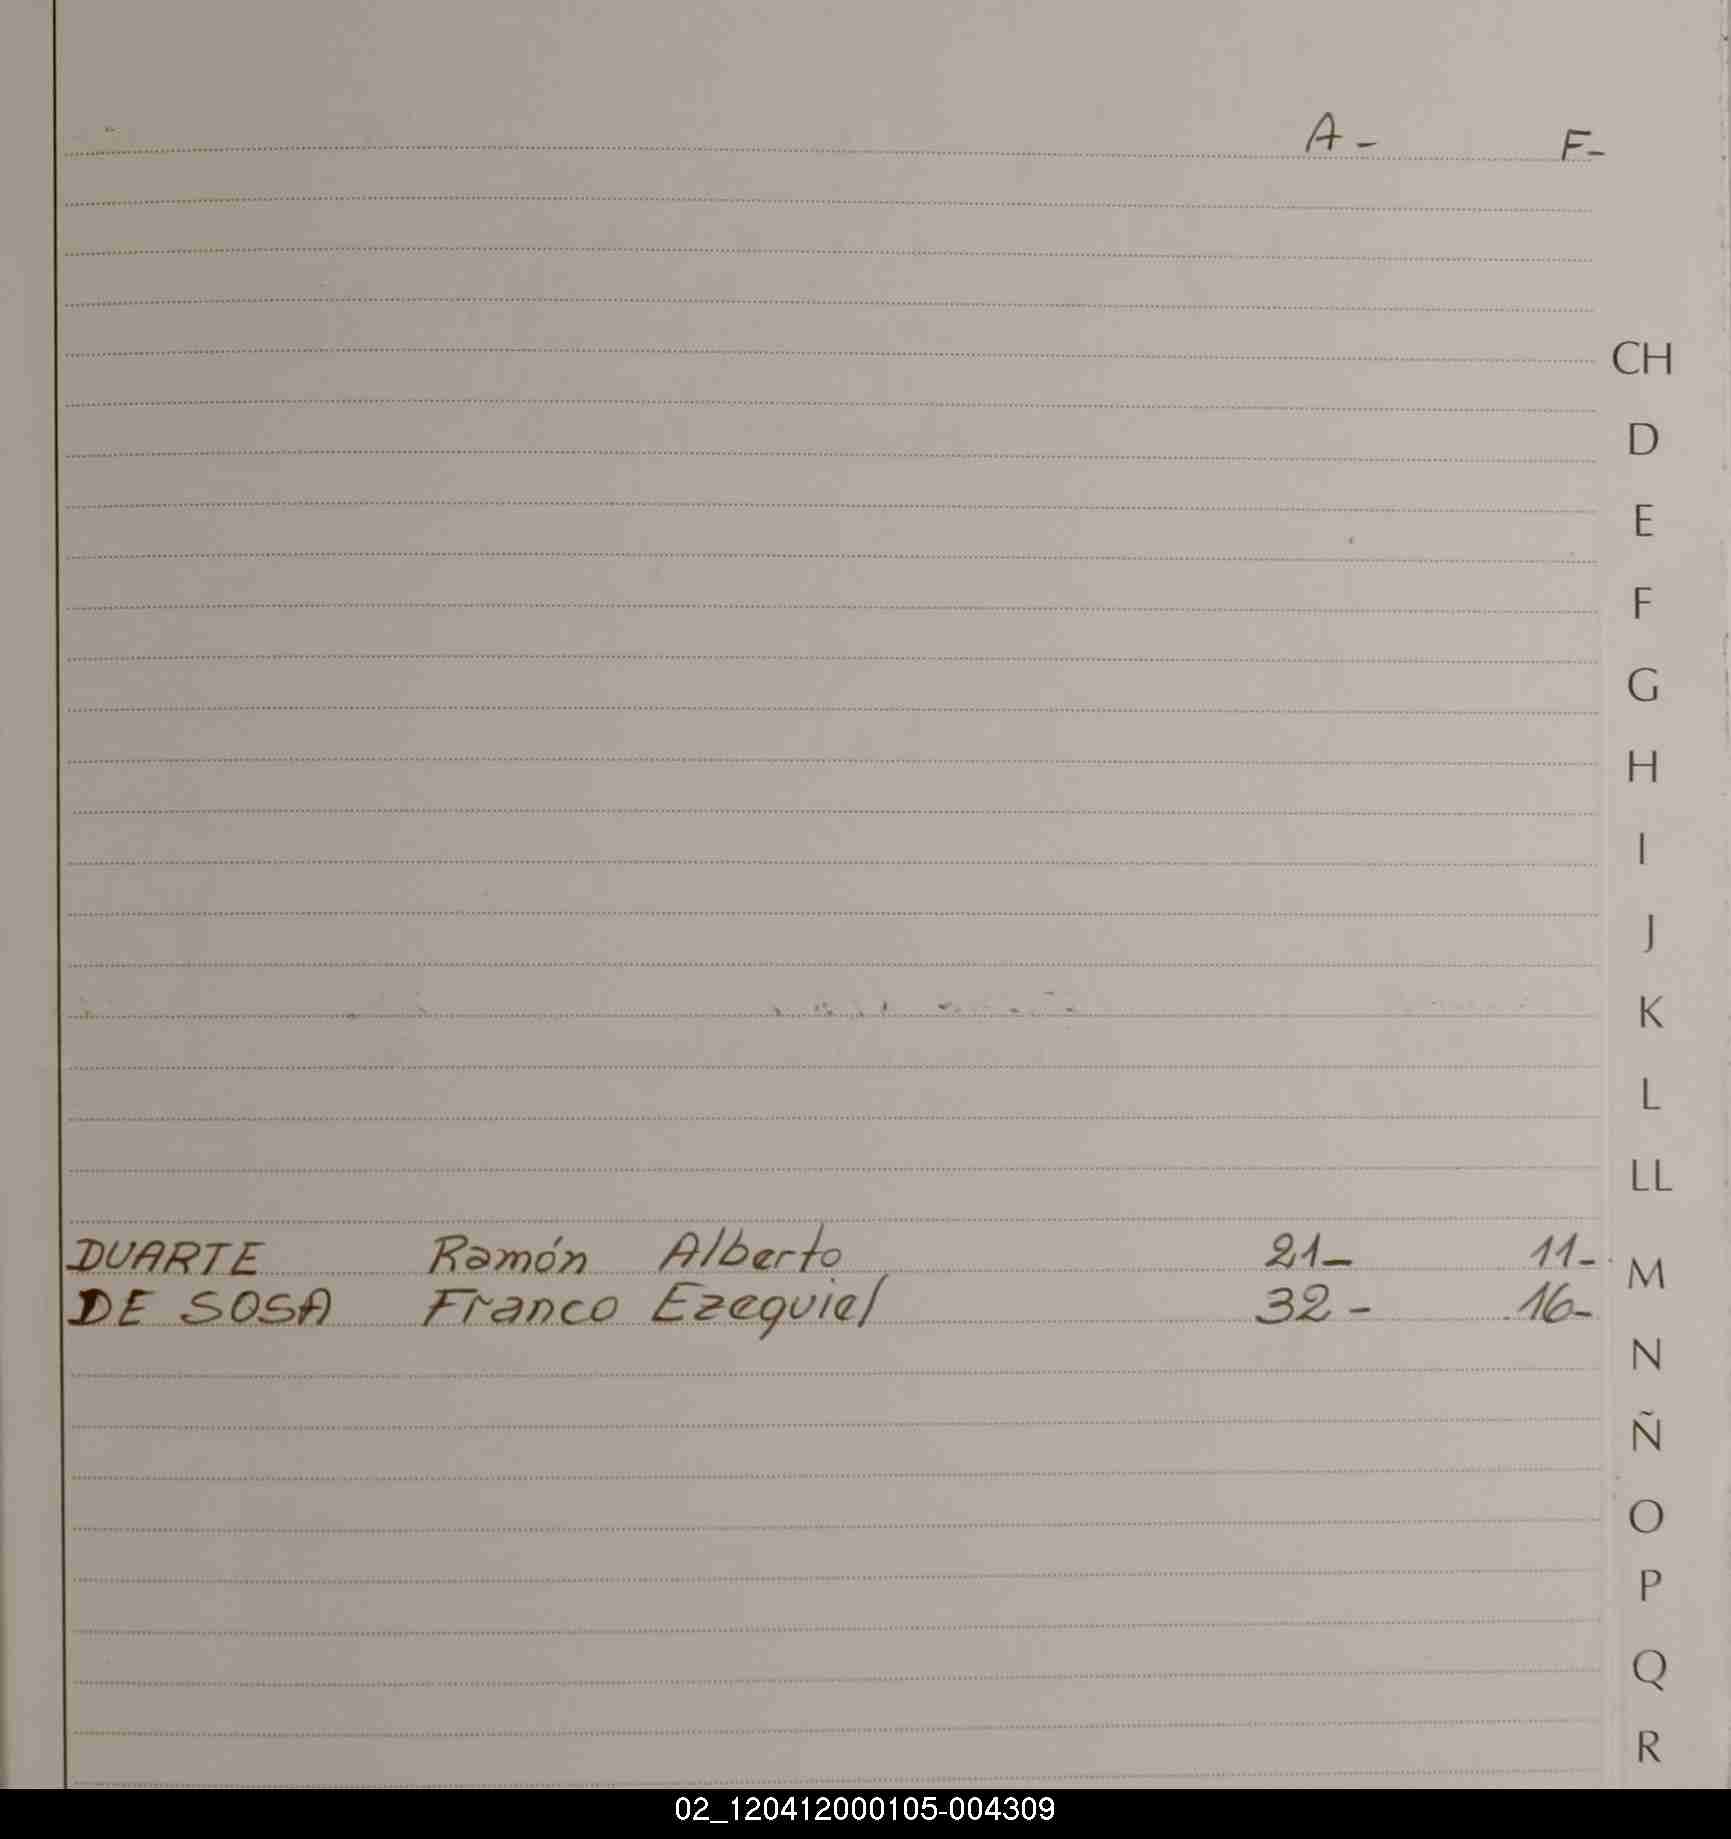 A - F-
CH
D
E
F
G
H
I
J
K
L
LL
DUARTE Ramón Alberto 21- 11-
M
DE SOSA Franco Ezequiel 32 - 16-
N
Ñ
O
P
Q
R
02_120412000105-004309